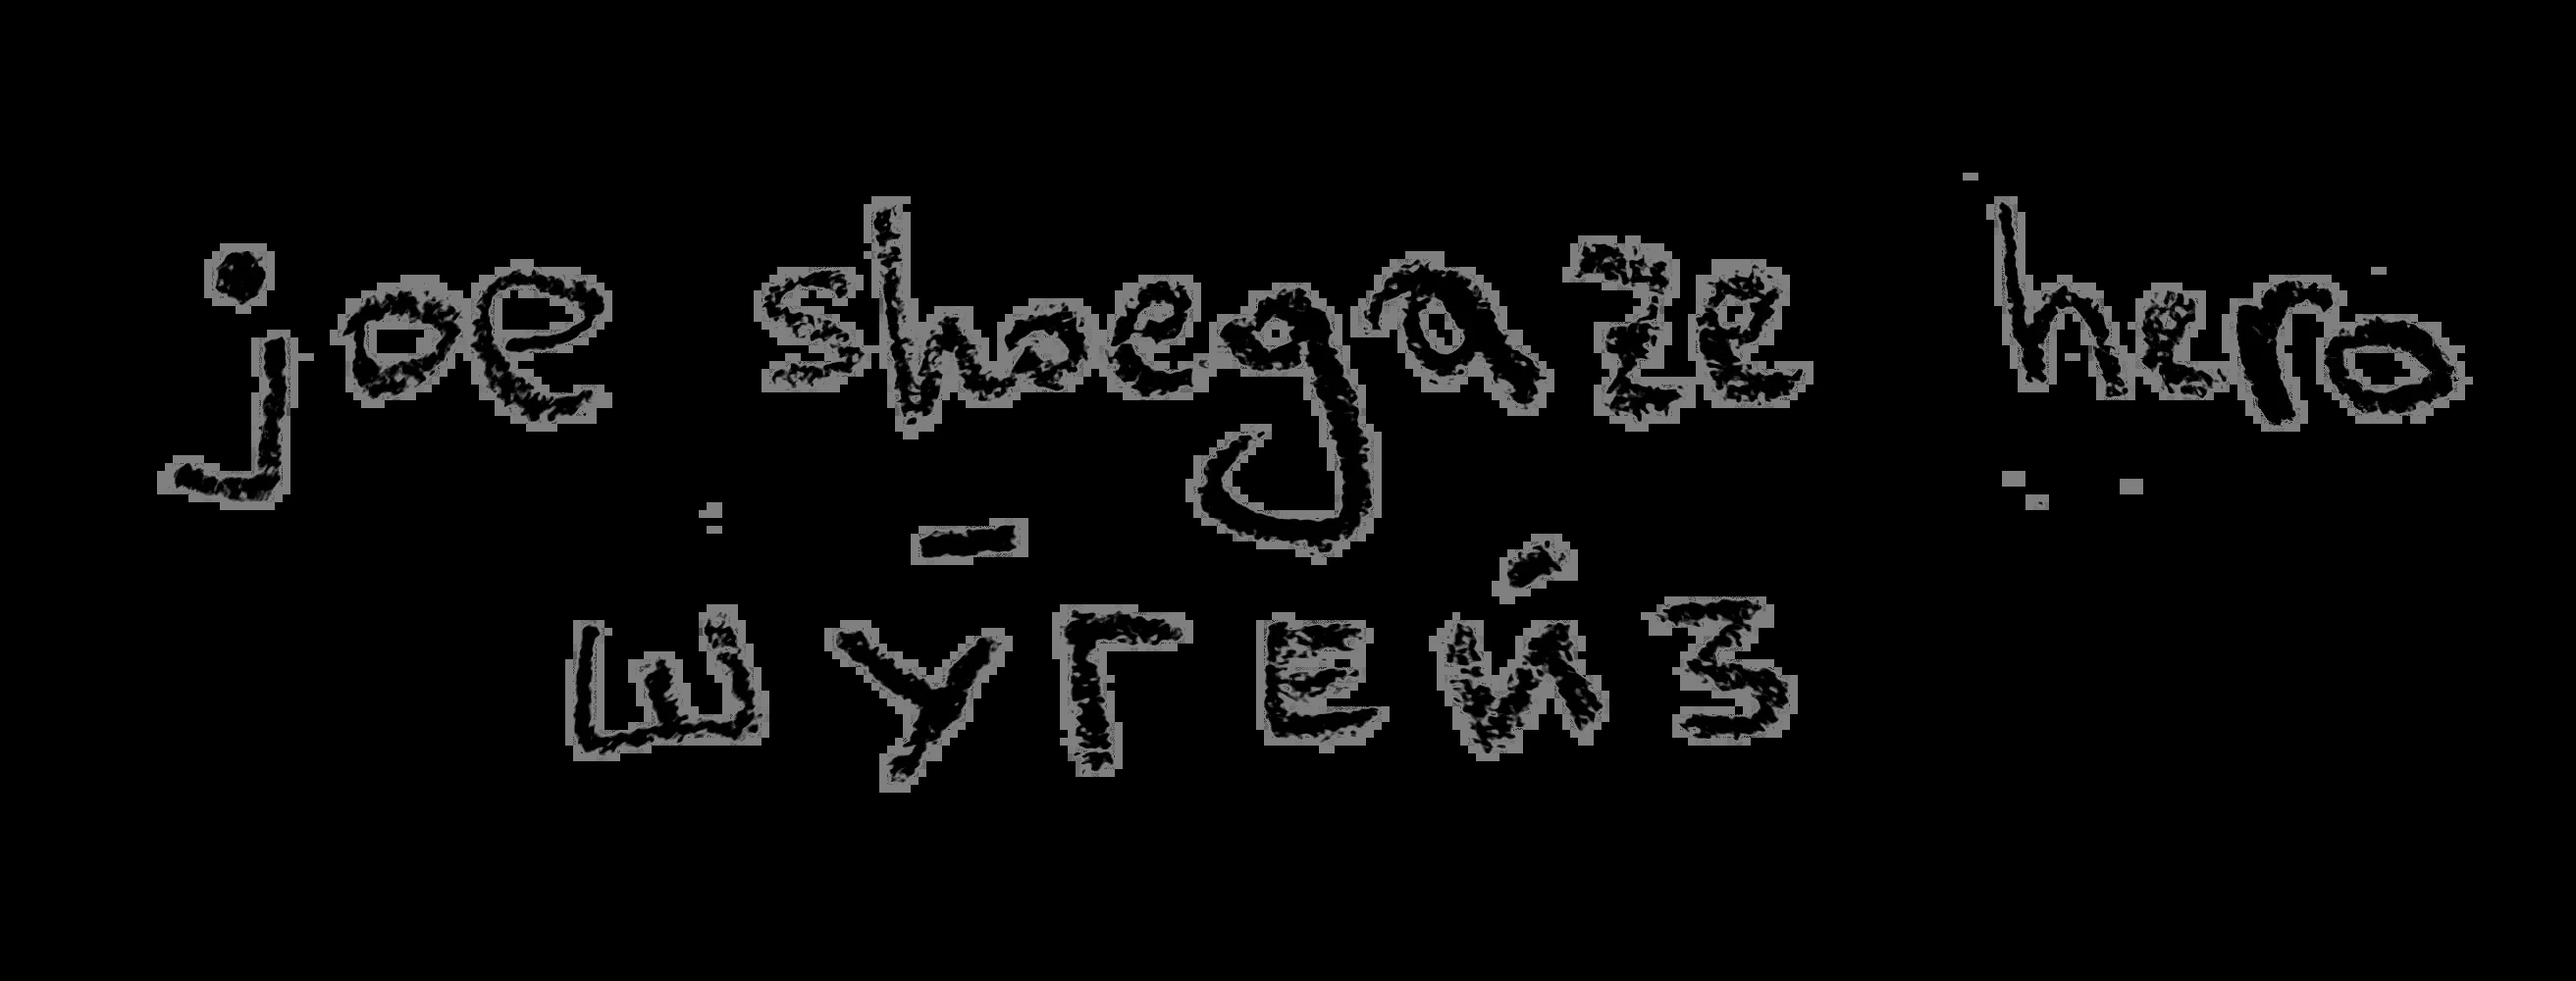 joe shoegaze hero
шӯгейз